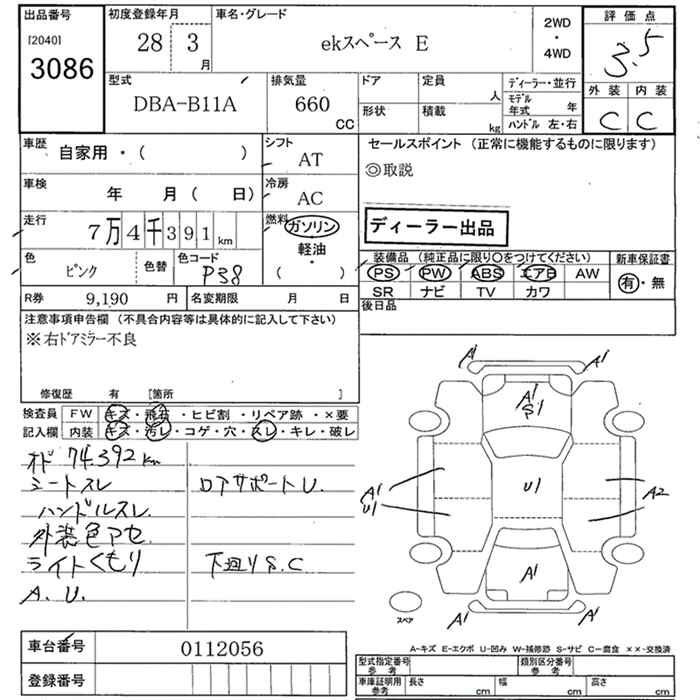 出品番号 [2040] 3086
初度登録年月 28 3 月
車名・グレード ekスペース E
2WD ・ 4WD
評価点 3.5
外装 C 内装 C
型式 DBA-B11A
排気量 660 CC
ドア 形状
定員 人
積載 kg
ディーラー・並行
モデル年式 年
ハンドル 左・右
車歴 自家用・( )
シフト AT
セールスポイント (正常に機能するものに限ります)
◎取説
車検 年 月( 日)
冷房 AC
走行 7万4千391km
燃料 ガソリン・軽油・( )
ディーラー出品
色 ピンク 色替 色コード P38
装備品 (純正品に限り〇をつけてください)
PS PW ABS エアB AW
SR ナビ TV カワ
新車保証書 有・無
R券 9,190 円 名変期限 月 日
後日品
注意事項申告欄 (不具合内容等は具体的に記入して下さい)
※右ドアミラー不良
修復歴 有 [箇所 ]
検査員 FW キズ・飛石・ヒビ割・リペア跡・×要
記入欄 内装 キズ・汚レ・コゲ・穴・スレ・キレ・破レ
オド 74.392 km
シートスレ ロアサポートU.
ハンドルスレ
外装色アセ
ライトくもり 下廻りS.C
A. U.
A1 A1
A1
S1
A1
U1
U1
A2
A1
A1 A1
スペア
A-キズ E-エクボ U-凹み W-補修跡 S-サビ C-腐食 ××-交換済
車台番号 0112056
登録番号
型式指定番号 参考 類別区分番号 参考
車庫証明用 参考 長さ cm 幅 cm 高さ cm